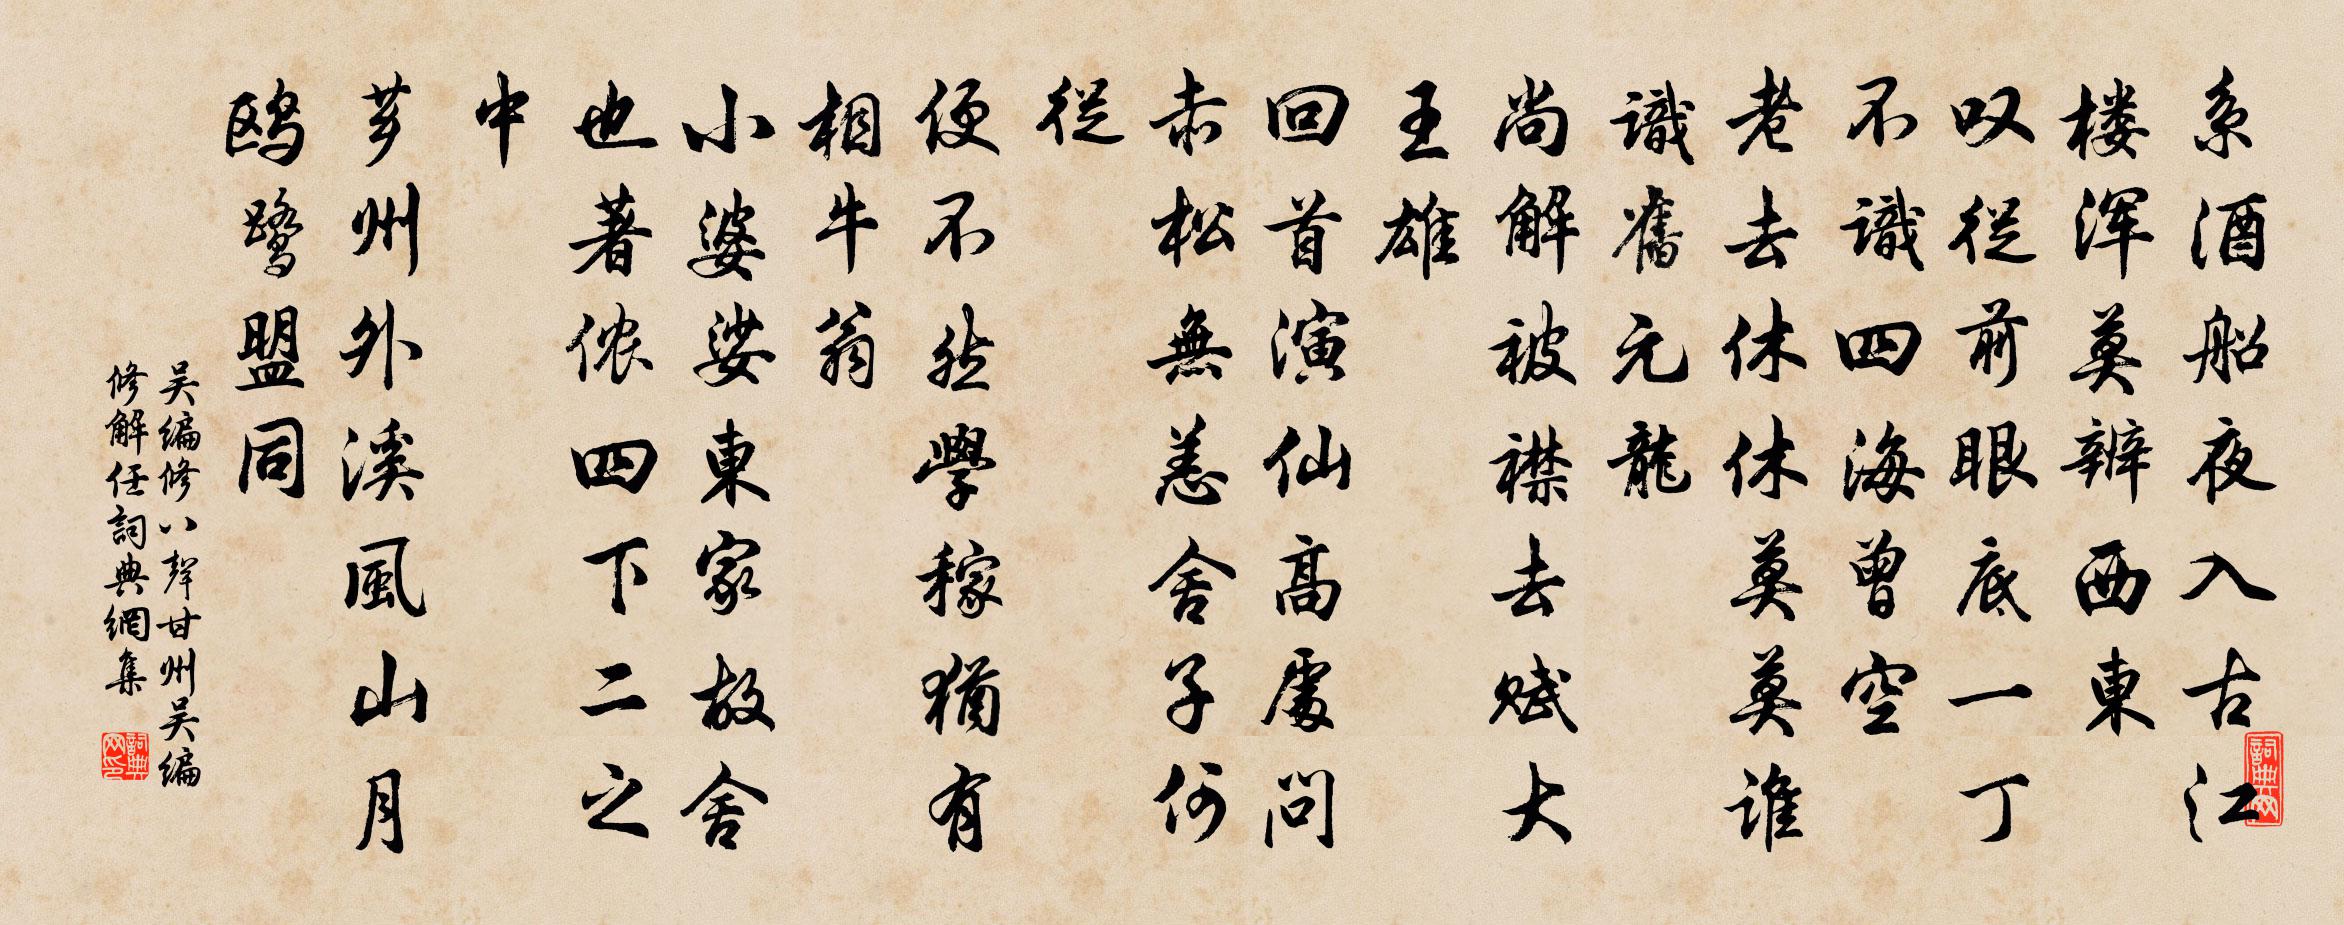 系酒船夜入古江
楼浑莫辨西東
叹從前眼底一丁
不識四海曾空
老去休休莫莫谁
識舊元龍
尚解被襟去赋大
王雄
回首演仙高處問
赤松無恙舍子何
從
便不然學稼猶有
相牛翁
小婆娑東家故舍
也著侬四下二之
中
芗州外溪風山月
鸥鹭盟同
吴编修八聲甘州吴编
修解任詞典網集
詞典网
詞典网印